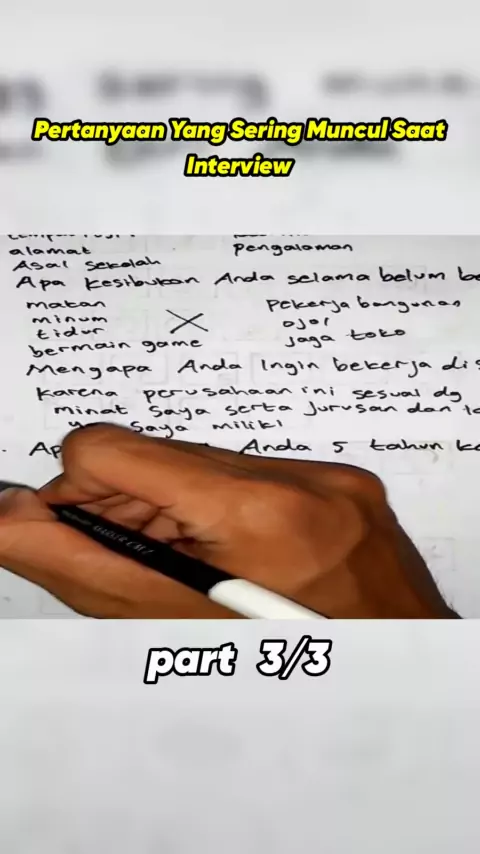 Pertanyaan Yang Sering Muncul Saat
Interview
alamat pengalaman
Asal sekolah
Apa kesibukan Anda selama belum be
makan pekerja bangunan
minum ojol
tidur jaga toko
bermain game
Mengapa Anda Ingin bekerja dis
karena perusahaan ini sesuai dg
minat saya serta jurusan dan
saya miliki
Anda 5 tahun ke
part 3/3